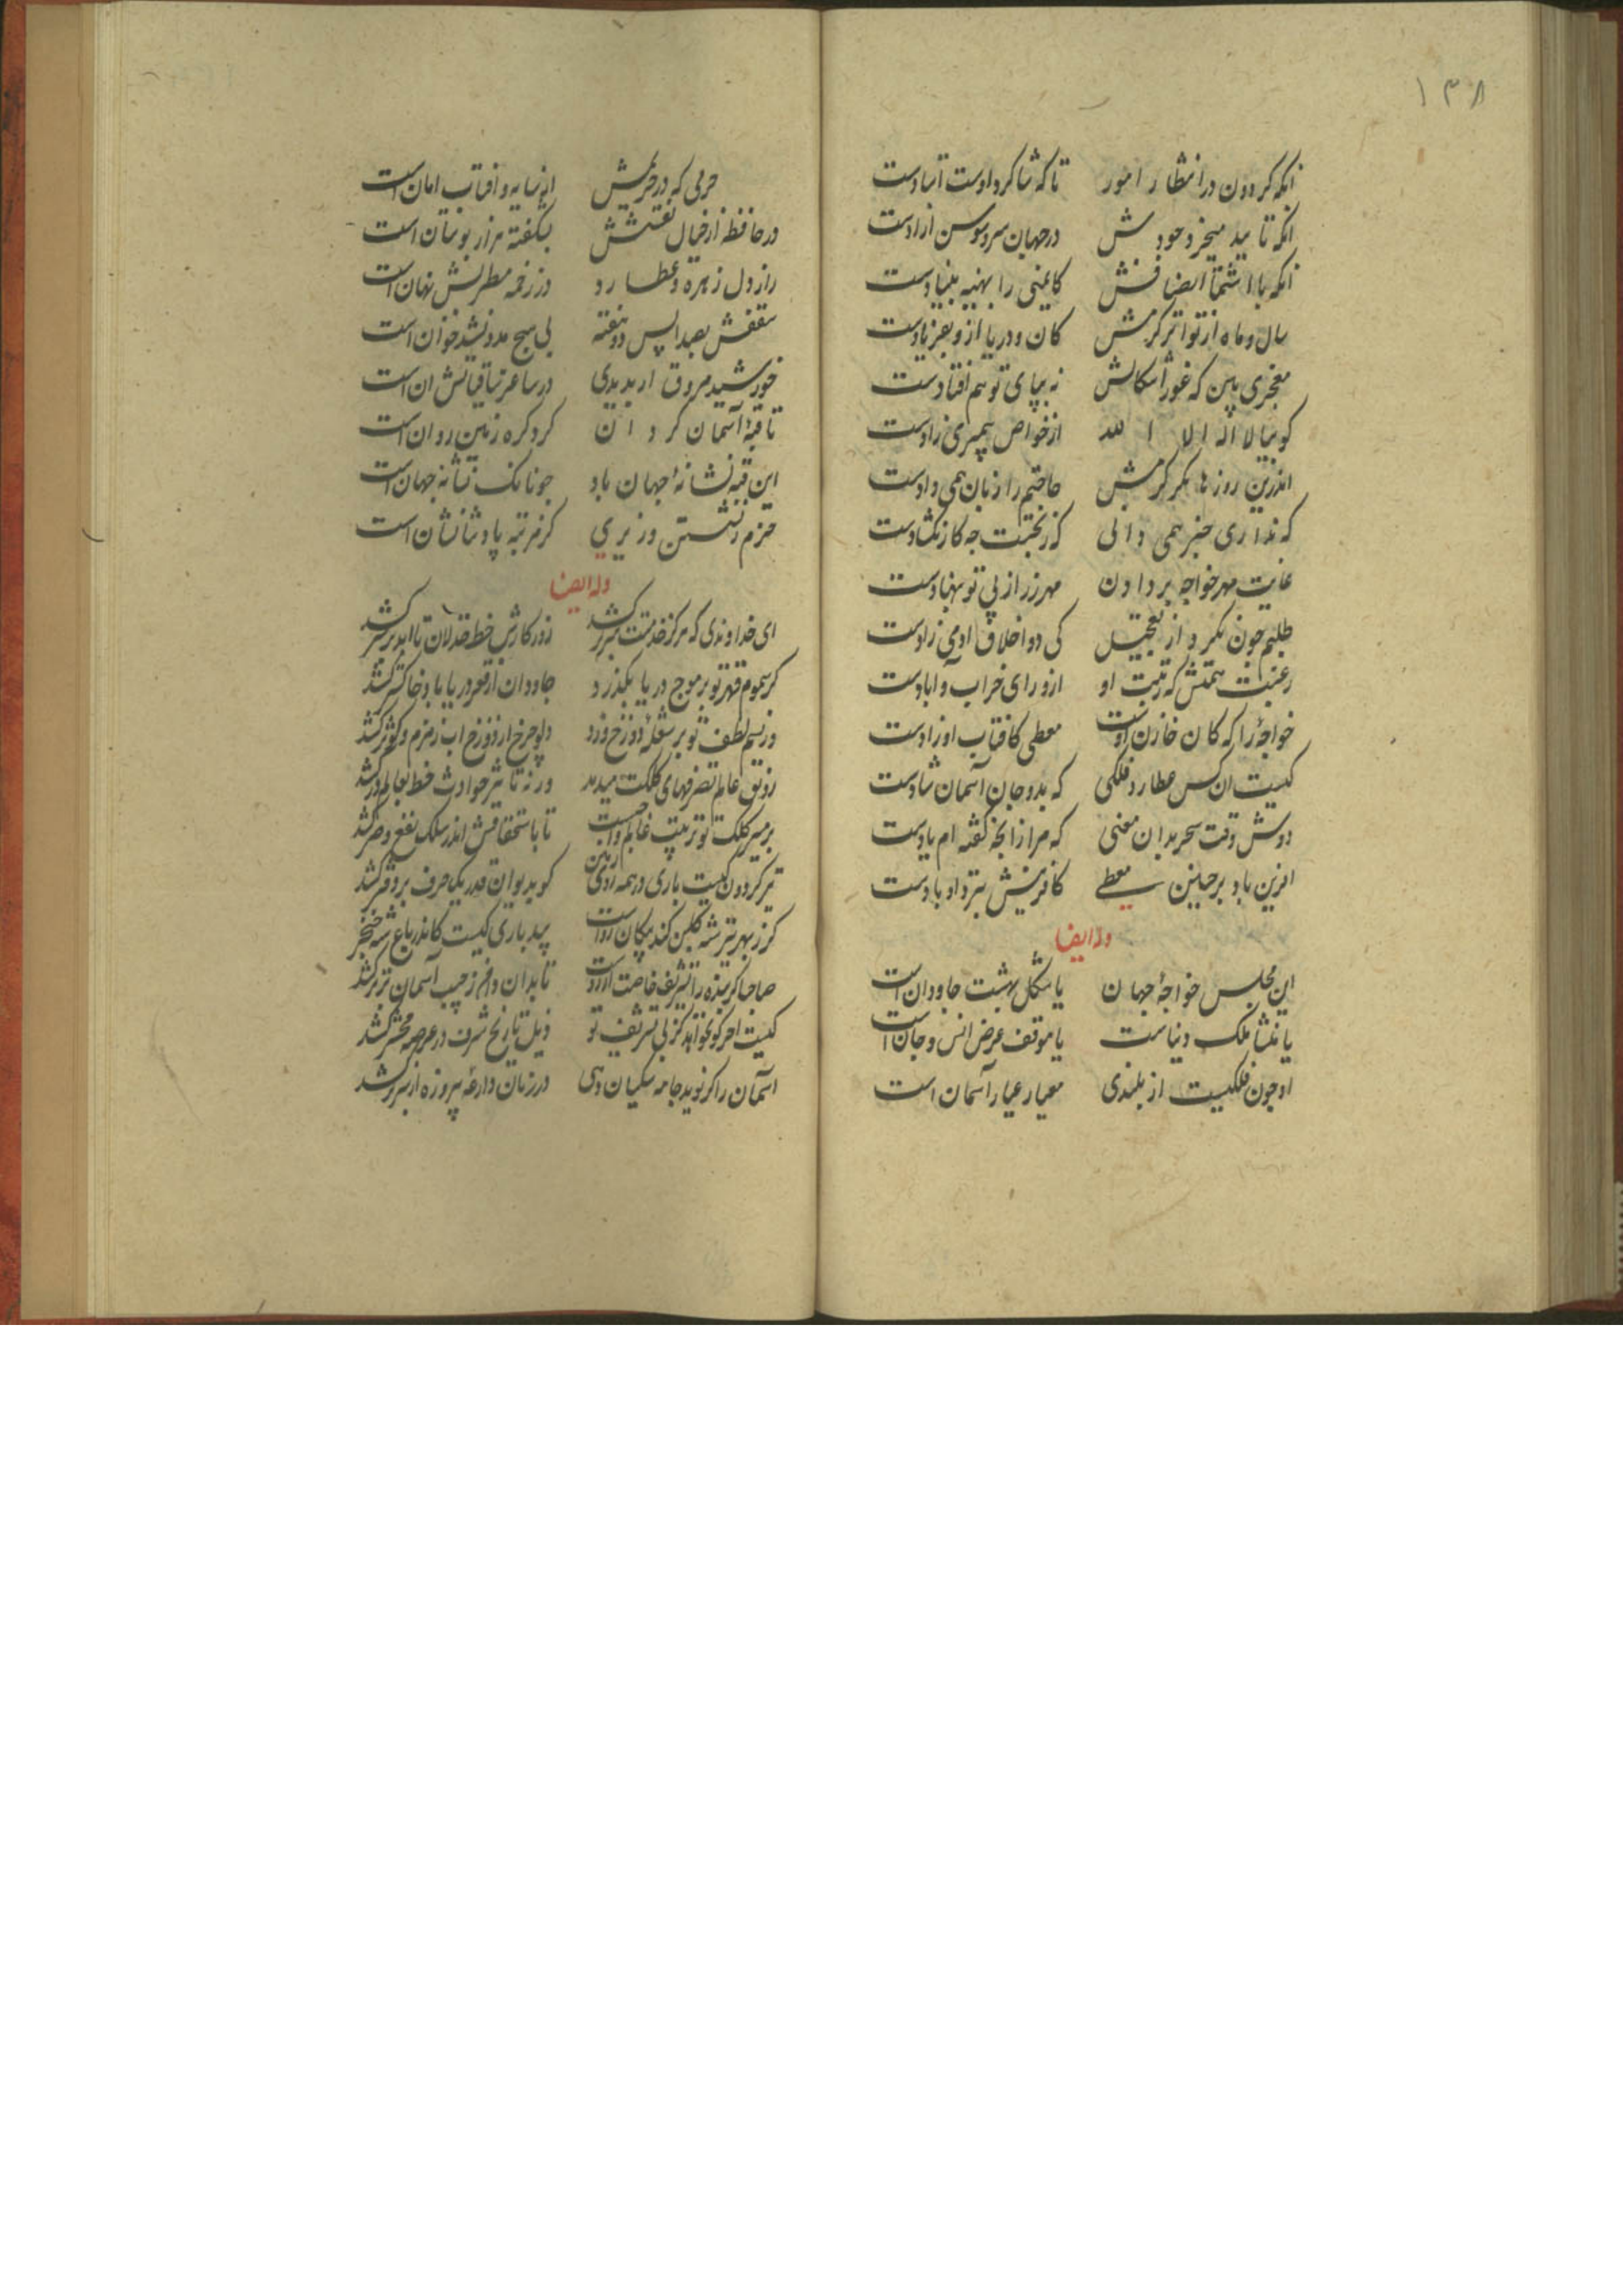 ۱۳۸
انکه کردون در انتظار امور تا که شاکرد اوست استادست
انکه تا مید میخرد جودش در جهان سرو و سوسن ازادست
انکه با اشتمال انصافش کایمنی را بهینه بنیادست
سال و ماه از تواتر کرمش کان و دریا از و بفریادست
معجزی بین که غور اشکالش نه بپای توهم افتادست
کو بیالا اله الا الله از خواص پیمبری زادست
اندرین روزها مکر کرمش حاجتم را زبان همی دادست
که نداری خبر همی دانی که ز بختت چه کار بکشادست
غایت مهر خواجه بر دادن مهر زر از پی تو بنهادست
طلبم چون مکرد از تعجیل کی در اخلاق ادمی زادست
رغبت همتش که رتبت او از ورای خراب و ابادست
خواجهٔ را که کان خازن اوست معطی کافتاب اوزادست
کیست ان کس عطارد فلکی که بدو جان آسمان شادست
دوش وقت سحر بدان معنی که مرا زانچه کفته ام یادست
افرین باد بر چنین معطی کافرینش بنزد او بادست
وله ایضا
این مجلس خواجهٔ جهان یا شکل بهشت جاودان است
یا منشا ملک دنیاست یا موقف عرض انس و جان است
او چون فلکیست از بلندی معیار عیار آسمان است
حربی که در حریمش از سایه و افتاب امان است
در حافظه از خیال نقشش بشکفته هزار بوستان است
راز دل زهره و عطارد در زخمه مطربش نهان است
سقفش بصدا پس دو هفته بی هیچ مدد نشید خوان است
خورشید مروق ار بدیدی در ساغر ساقیانش ان است
تا قبهٔ آسمان کردان کرد کره زمین روان است
این قبه نشانهٔ جهان باد چونانک نشانه جهان است
خرم ز نشستن وزیری کز مرتبه پادشا نشان است
وله ایضا
ای خداوندی که هرکز خدمتت سر کشد روزکارش خط خذلان تا ابد بر سر کشد
کر سموم قهر تو بر موج دریا بکذرد جاودان از قعر دریا باد خاکستر کشد
ور نسیم لطف تو بر شعلهٔ دوزخ وزد دلو چرخ از دوزخ اب زمزم و کوثر کشد
رونق عالم تصرفهای کلکت میدهد ور نه تاثیر حوادث خط بعالم در کشد
بر مسیر کلک تو ترتیب عالم واجبست تا باستحقاقش اندر سلک نفع و ضر کشد
تیر کردون کیست باری در همه روی زمین کو بدیوان قدر یکحرف بر دفتر کشد
کر ز بهر تیر شه کلبن کند پیکان رواست بید باری کیست کاندر باغ شه خنجر کشد
صاحبا کر بنده را تشریف خاصت ارزوست تا بدان دامن ز جیب آسمان برتر کشد
کیست اخر کو نخواهد کز پی تشریف تو ذیل تاریخ شرف در عرصه محشر کشد
آسمان را کر نوید جامه سکبان دهی در زمان دراعهٔ پیروزه از سر بر کشد